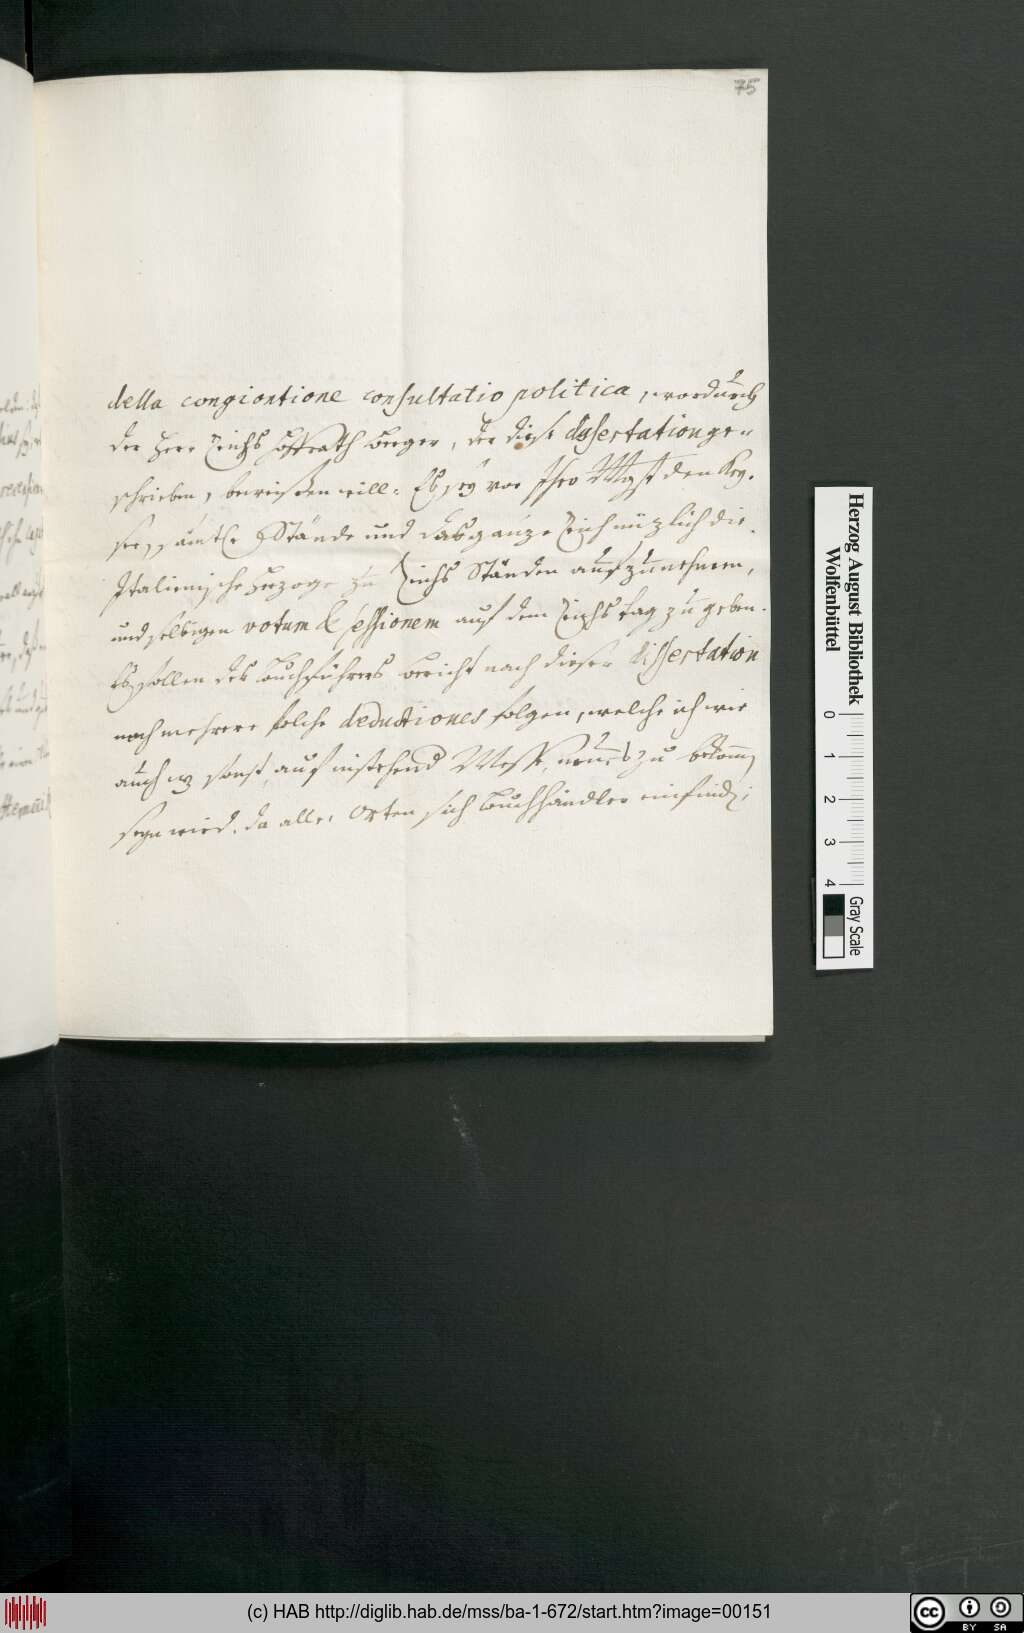 75
della congiontione consultatio politica, wordurch
der Herr Reichs Hoffrath Berger, der diese dissertation ge-
schrieben, beweisen will. Es sey vor Ihro Mayst den Kay-
ser, sämtl. Stände und das ganze Reich nüzlich die
Italienische Herzoge zu Reichs Ständen auffzunehmen,
und selbigen votum & sessionem auf dem Reichs tag zu geben.
Es sollen des Buchführers bericht nach dieser dissertation
noch mehrere solche deductiones folgen, welche ich wie
auch sonst auf instehend Messe, neues zu bekomm
seyn wird, da aller Orten sich Buchhändler einfind.
Herzog August Bibliothek
Wolfenbüttel
0 1 2 3 4
Gray Scale
(c) HAB http://diglib.hab.de/mss/ba-1-672/start.htm?image=00151
cc BY SA